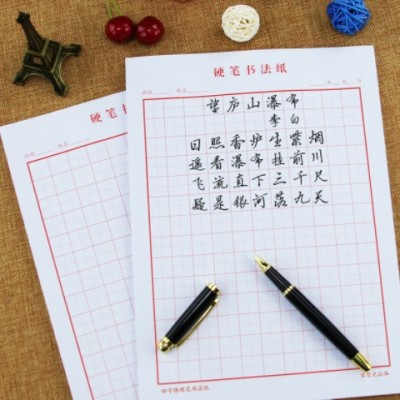 硬笔书法纸
望庐山瀑布
李白
日照香炉生紫烟
遥看瀑布挂前川
飞流直下三千尺
疑是银河落九天
硬笔书